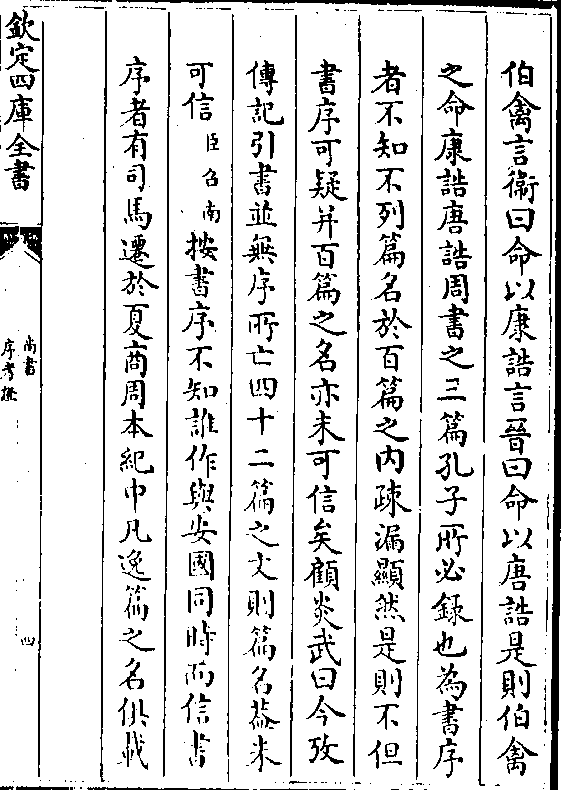 伯禽言衛曰命以康誥言晉曰命以唐誥是則伯禽
之命康誥唐誥周書之三篇孔子所必録也為書序
者不知不列篇名於百篇之内疎漏顯然是則不但
書序可疑并百篇之名亦未可信矣顧炎武曰今攷
傳記引書並無序所亡四十二篇之文則篇名葢未
可信臣召南按書序不知誰作與安國同時而信書
序者有司馬遷於夏商周本紀中凡逸篇之名俱載
欽定四庫全書
尚書
序考證
四